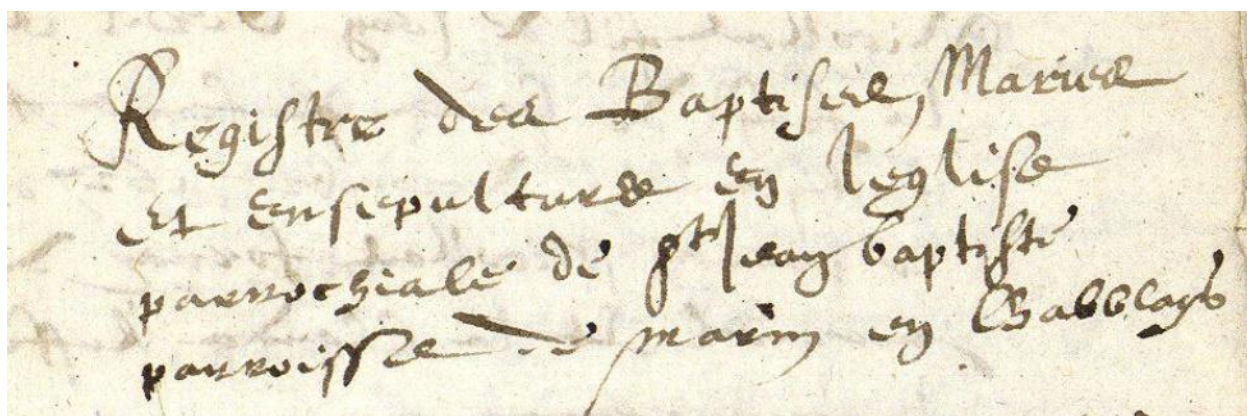 Registre des Baptises, Maries
et ensepultures en leglise
parrochiale de st Jean baptiste
parroisse de marin en Gabblays